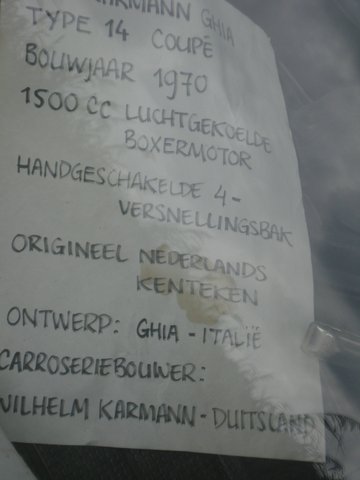 KARMANN GHIA
TYPE 14 COUPÉ
BOUWJAAR 1970
1500 CC LUCHTGEKOELDE
BOXERMOTOR
HANDGESCHAKELDE 4-
VERSNELLINGSBAK
ORIGINEEL NEDERLANDS
KENTEKEN
ONTWERP: GHIA - ITALIË
CARROSERIEBOUWER:
WILHELM KARMANN - DUITSLAND